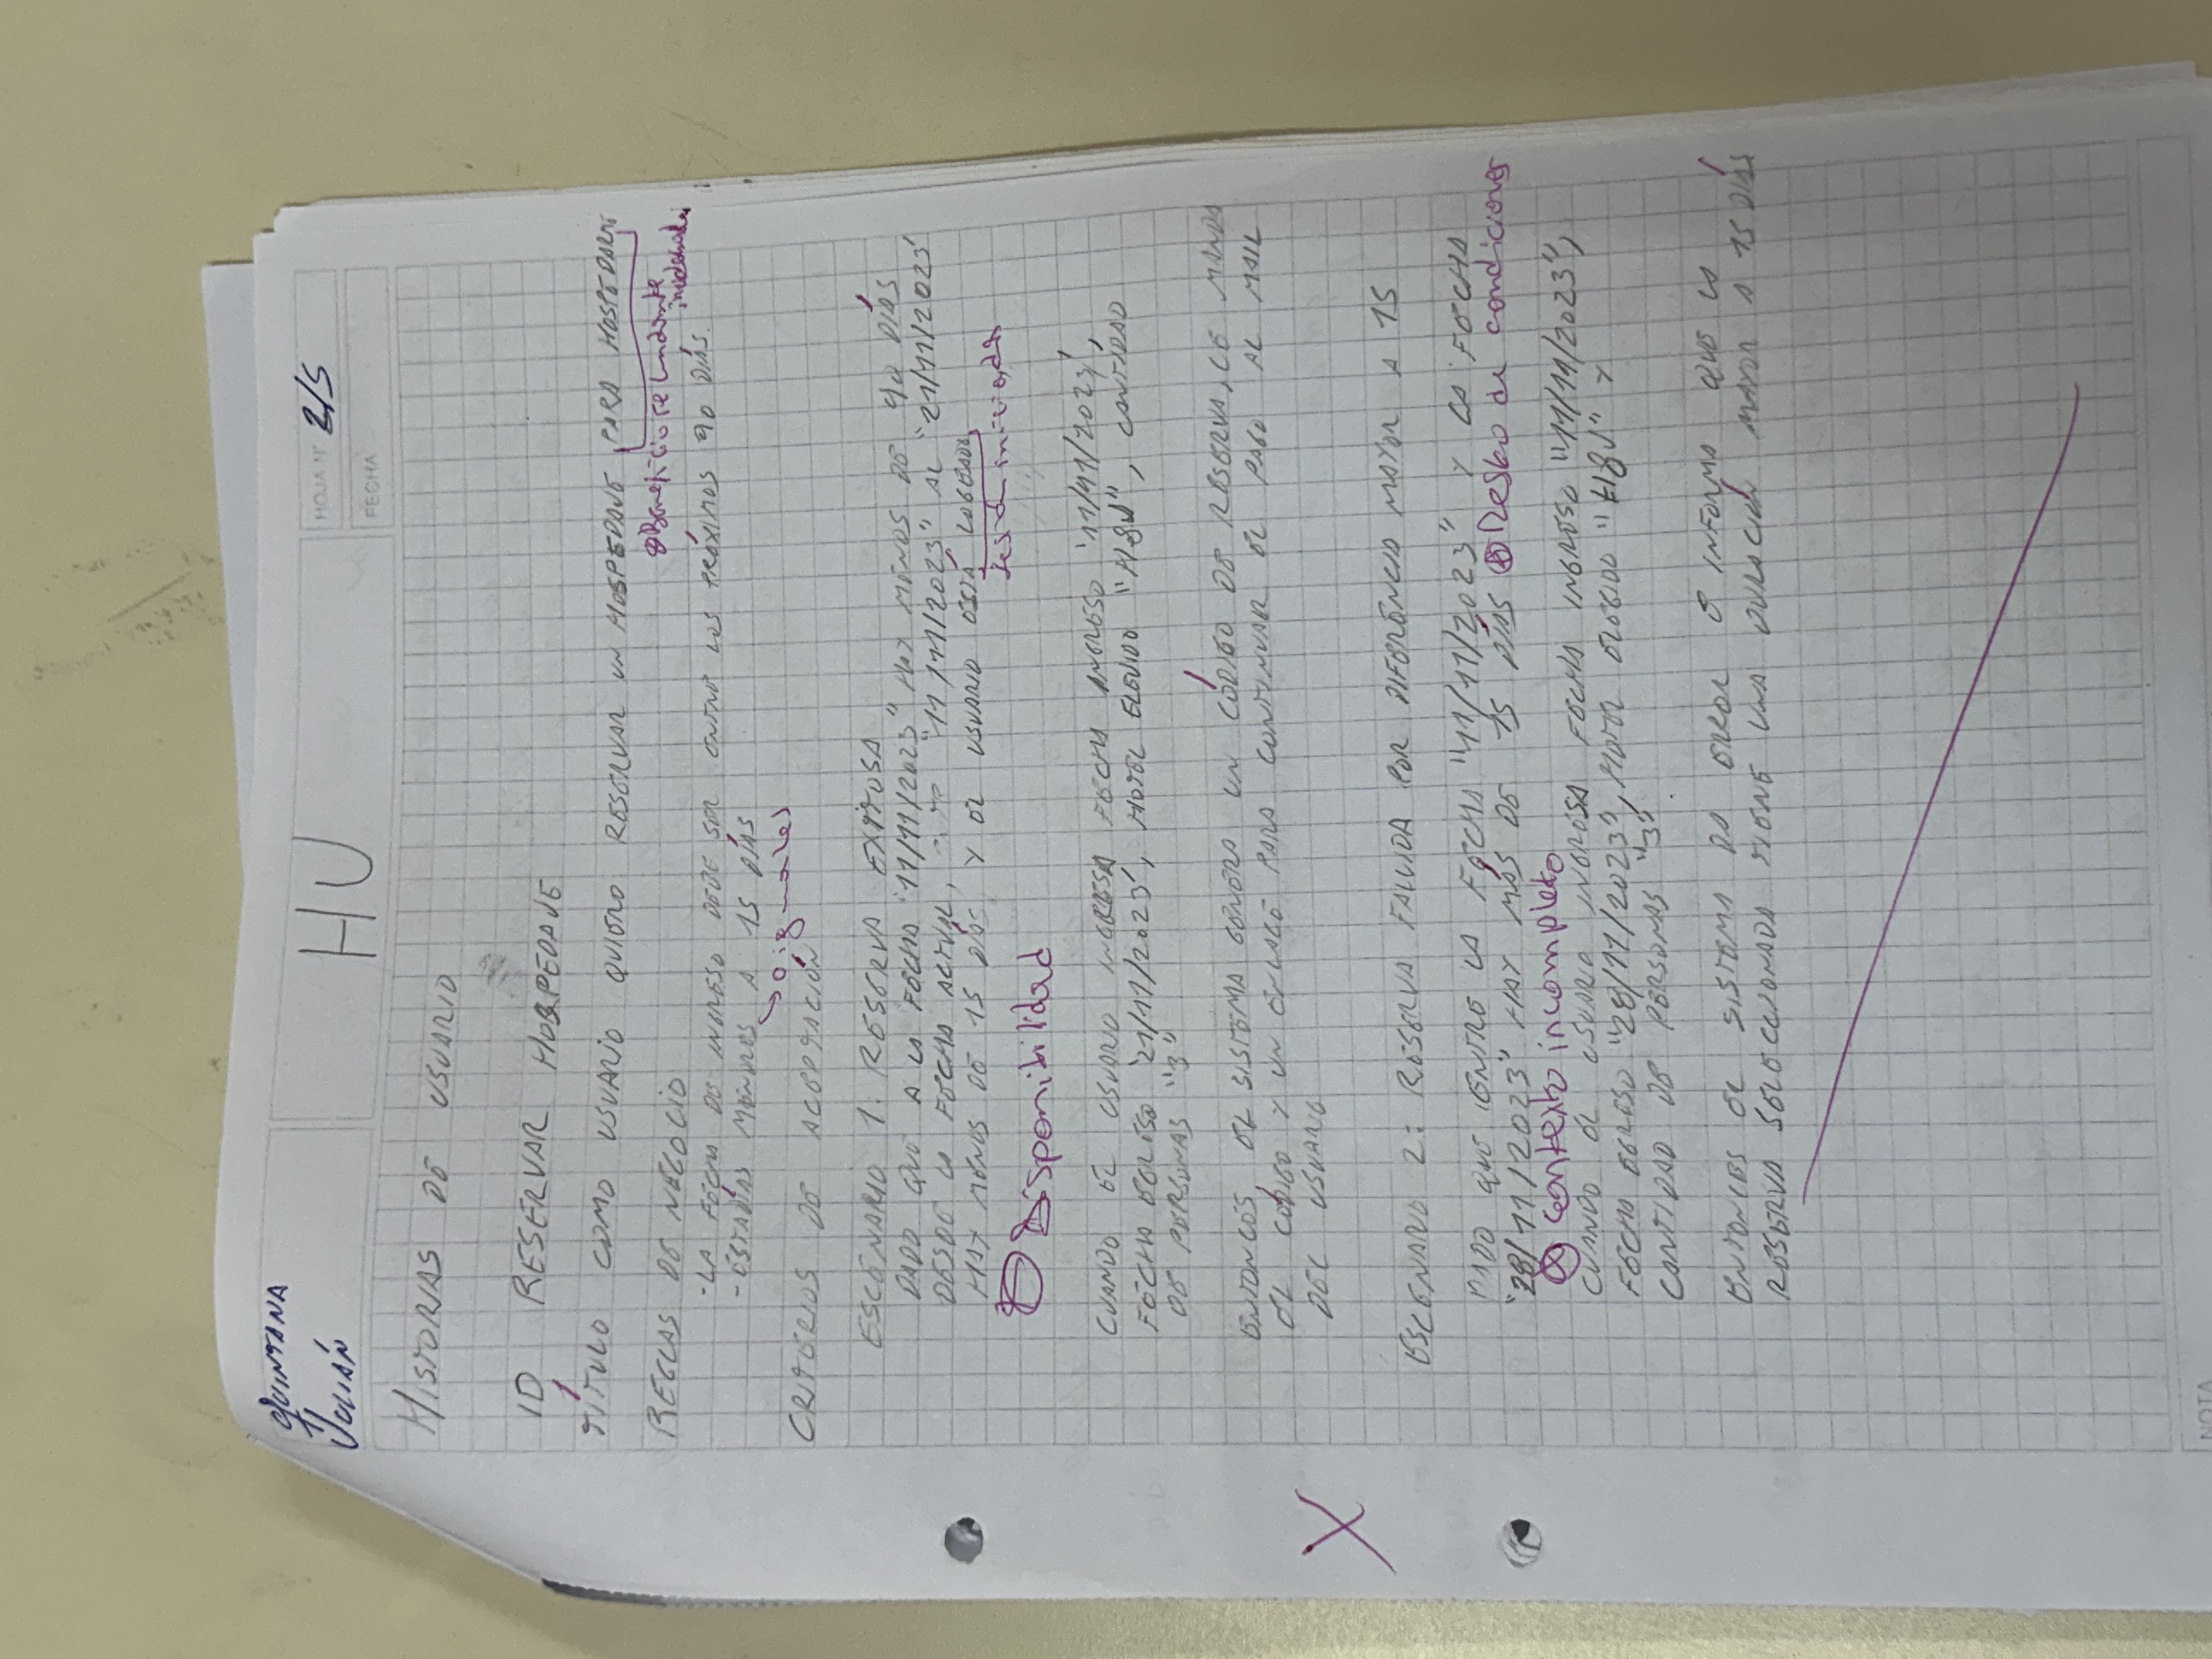 QUINTANA
JULIÁN
HU
HOJA N° 2/5
FECHA
HISTORIAS DE USUARIO
ID RESERVAR HOSPEDAJE
TÍTULO COMO USUARIO QUIERO RESERVAR UN HOSPEDAJE PARA HOSPEDARME
Beneficio redundante
REGLAS DE NEGOCIO
-LA FECHA DE INGRESO DEBE SER ENTRE LOS PRÓXIMOS 90 DÍAS.
-ESTADÍAS MENORES A 15 DÍAS
o iguales
CRITERIOS DE ACEPTACIÓN
ESCENARIO 1: RESERVA EXITOSA
DADO QUE A LA FECHA "11/11/2023" HAY MENOS DE 90 DÍAS
DESDE LA FECHA ACTUAL, "11/11/2023" AL "21/11/2023"
HAY MENOS DE 15 DÍAS Y EL USUARIO ESTÁ LOGEADO,
sesión iniciada
Disponibilidad
CUANDO EL USUARIO INGRESA FECHA INGRESO "11/11/2023",
FECHA EGRESO "21/11/2023", HOTEL ELEGIDO , CANTIDAD
DE PERSONAS "3"
ENTONCES, EL SISTEMA GENERA UN CÓDIGO DE RESERVA, LE MANDA
EL CÓDIGO Y UN ENLACE PARA CONTINUAR EL PAGO AL MAIL
DEL USUARIO
X
ESCENARIO 2: RESERVA FALLIDA POR DIFERENCIA MAYOR A 15
DADO QUE ENTRE LA FECHA "11/11/2023" Y LA FECHA
"28/11/2023" HAY MÁS DE 15 DÍAS Resto de condiciones
contexto incompleto
CUANDO EL USUARIO INGRESA FECHA INGRESO "11/11/2023",
FECHA EGRESO "28/11/2023", HOTEL ELEGIDO Y
CANTIDAD DE PERSONAS "3".
ENTONCES EL SISTEMA DA ERROR E INFORMA QUE LA
RESERVA SELECCIONADA TIENE UNA DURACIÓN MAYOR A 15 DÍAS
NOTA